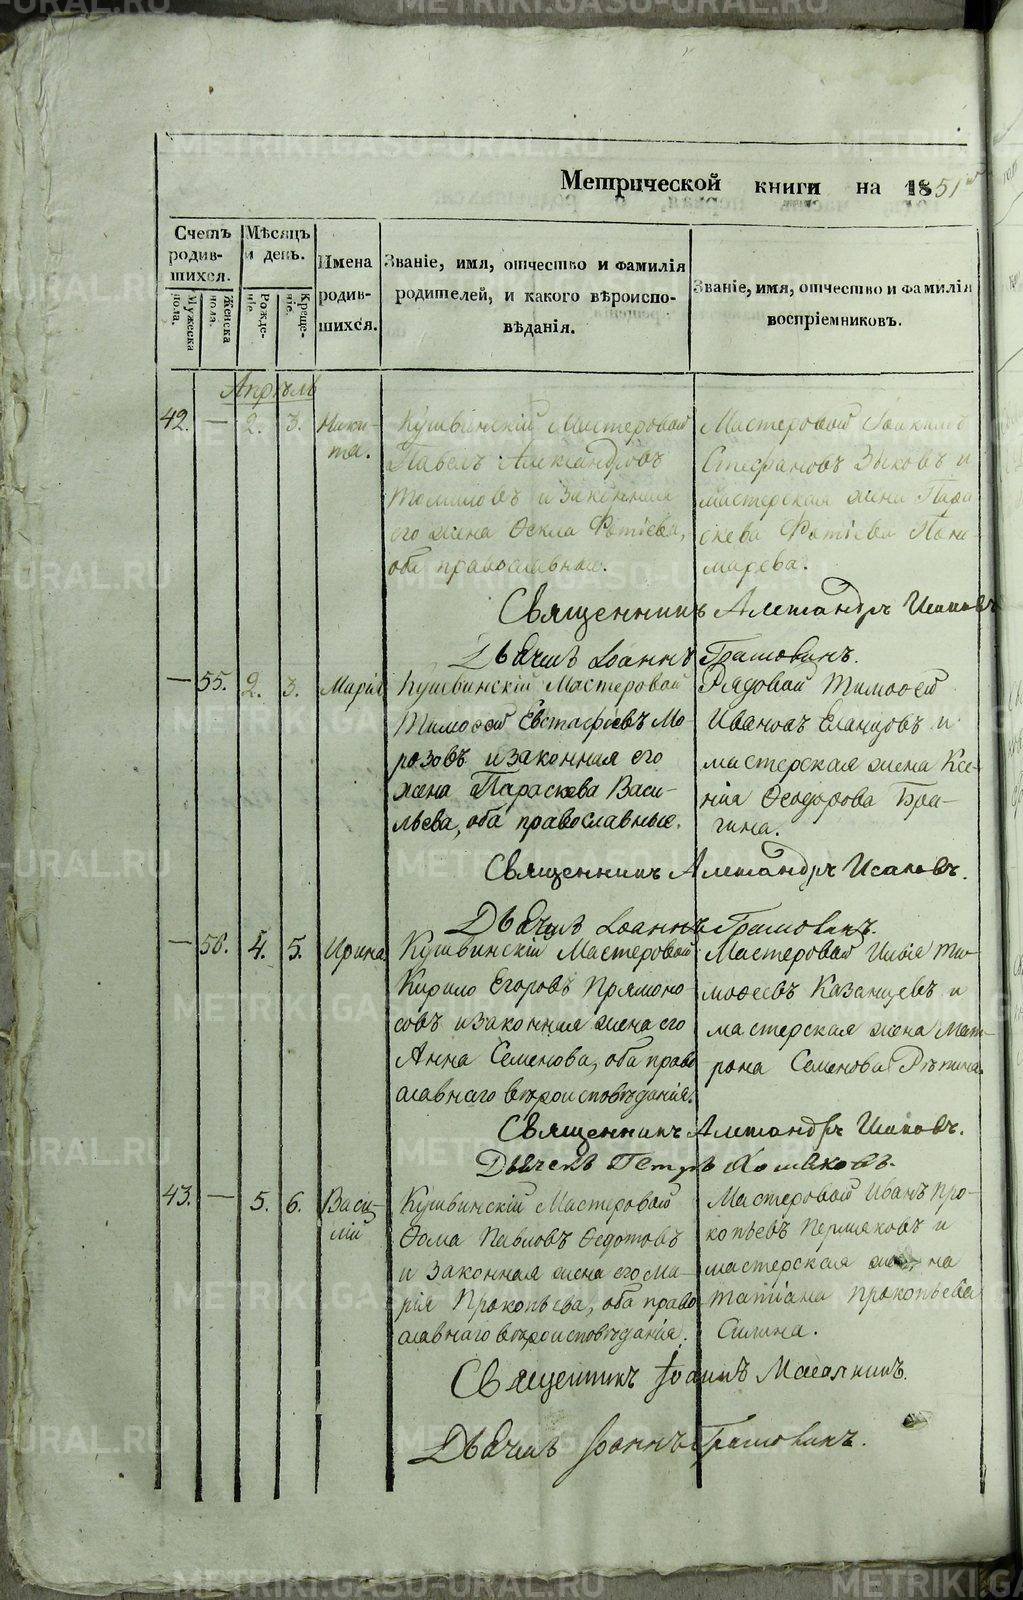 Метрической книги на 1851й
Счетъ родив-шихся.
Мужеска пола.
Женска пола.
Мѣсяцъ и день.
Рожде-ніе.
Креще-ніе.
Имена
родив-
шихся.
Званіе, имя, отчество и фамилія
родителей, и какого вѣроиспо-
вѣданія.
Званіе, имя, отчество и фамилія
воспріемниковъ.
Апрѣль
42. — 2. 3. Ники-
та.
Кушвинскій Мастеровой
Павелъ Александровъ
и законная
его жена Ѳекла Фотіева,
оба православные.
Мастеровой
Стефановъ Зыковъ и
мастерская жена Пара-
скева Фотіева Поно-
марева.
Священникъ Александръ Исаковъ
Дьячекъ Іоаннъ
— 55. 2. 3. Марія
Кушвинскій Мастеровой
Тимоѳей Евстафіевъ Мо-
розовъ и законная его
жена Параскева Васи-
льева, оба православные.
Рядовой Тимоѳей
Ивановъ Еланцовъ и
мастерская жена Ксе-
нія Ѳеодорова Бра-
гина.
Священникъ Александръ Исаковъ.
Дьячекъ Іоаннъ
— 56. 4. 5. Ирина
Кушвинскій Мастеровой
Кирило Егоровъ Прямоно-
совъ и законная жена его
Анна Семенова, оба право-
славнаго вѣроисповѣданія.
Мастеровой Илья Ти-
моѳеевъ Казанцевъ и
мастерская жена Мат-
рона Семенова Рѣпина.
Священникъ Александръ Исаковъ.
Дьячекъ Петръ Хомяковъ.
43. — 5. 6. Васи-
лій
Кушвинскій Мастеровой
Ѳома Павловъ Ѳедотовъ
и законная жена его Ма-
рія Прокопьева, оба право-
славнаго вѣроисповѣданія.
Мастеровой Иванъ Про-
копьевъ Пермяковъ и
мастерская жена
Татіана Прокопьева
Силина.
Священникъ Іоаннъ
Дьячекъ Іоаннъ
METRIKI.GASO-URAL.RU